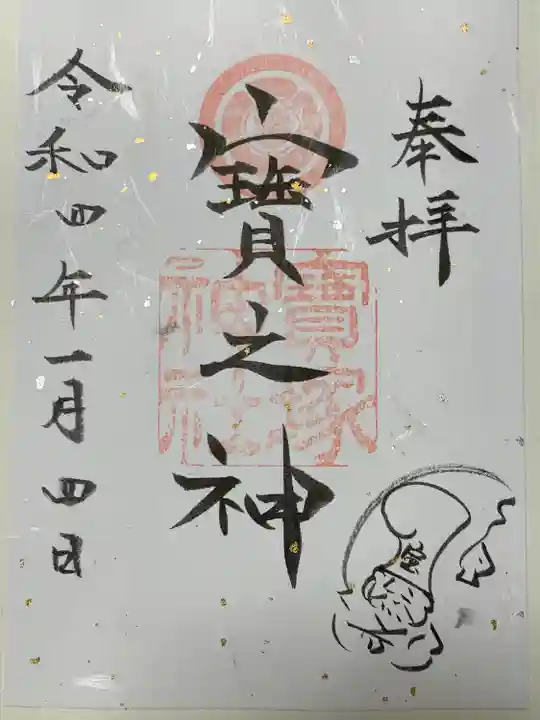 奉拝
寳之神
寳家神社
令和四年一月四日